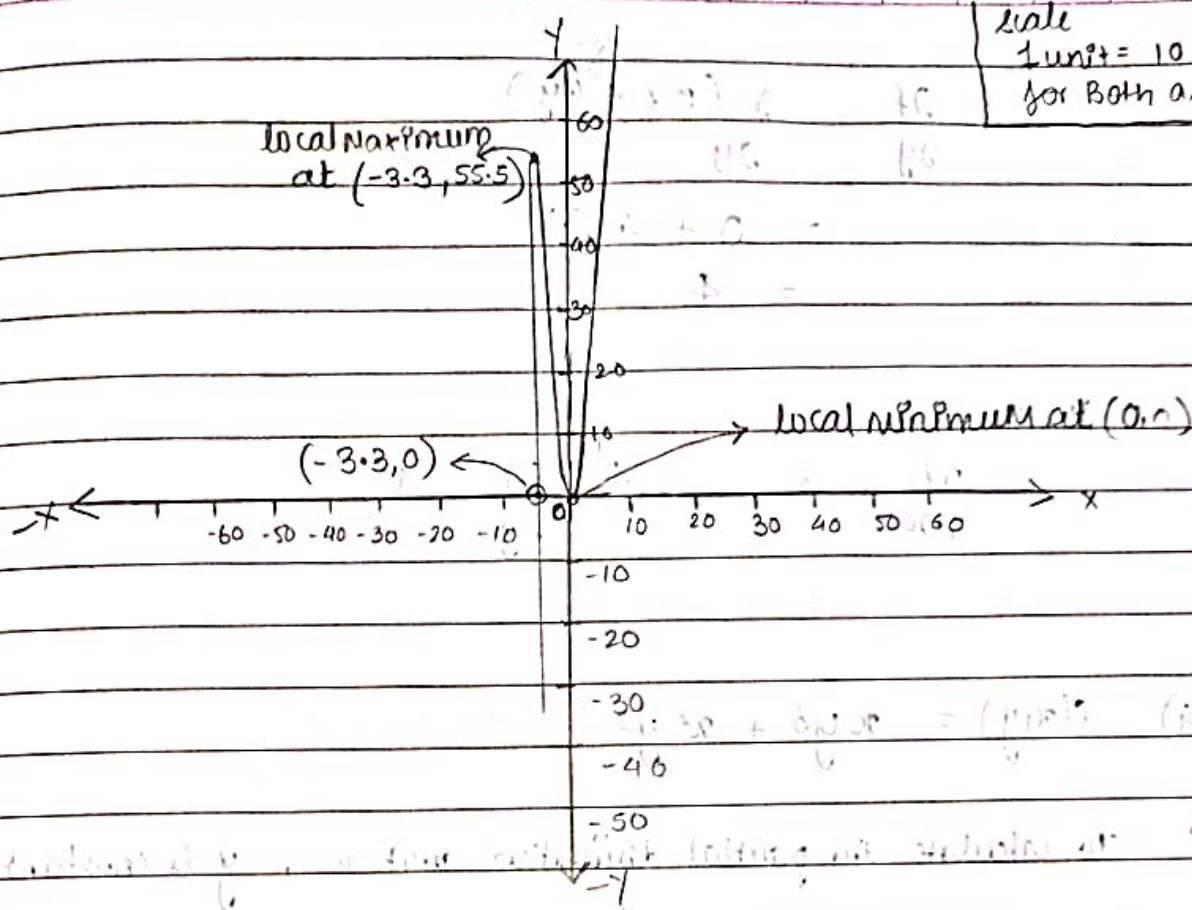 Scale
1 unit = 10
for Both a
Y
60
local Maximum
at (-3.3, 55.5)
50
40
30
20
10
local Minimum at (0,0)
(-3.3, 0)
-X
-60 -50 -40 -30 -20 -10 0 10 20 30 40 50 60
X
-10
-20
-30
-40
-50
-Y